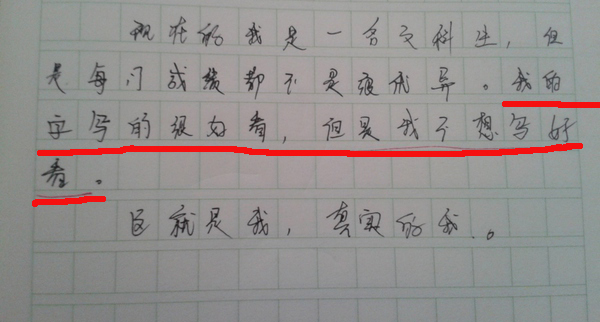 现在的我是一名文科生，但
是每门成绩都不是很优异。我的
字写的很好看，但是我不想写好
看。
这就是我，真实的我。